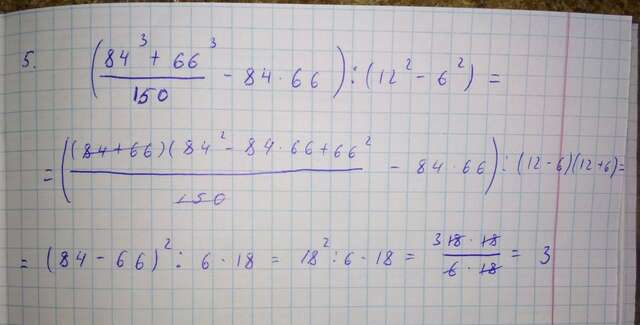 5. ( (84³ + 66³)/150 - 84 · 66 ) : (12² - 6²) =
= ( (84 + 66)(84² - 84 · 66 + 66²/150 - 84 · 66 ) : (12 - 6)(12 + 6) =
= (84 - 66)² : 6 · 18 = 18² : 6 · 18 = 3 18 · 18/6 · 18 = 3